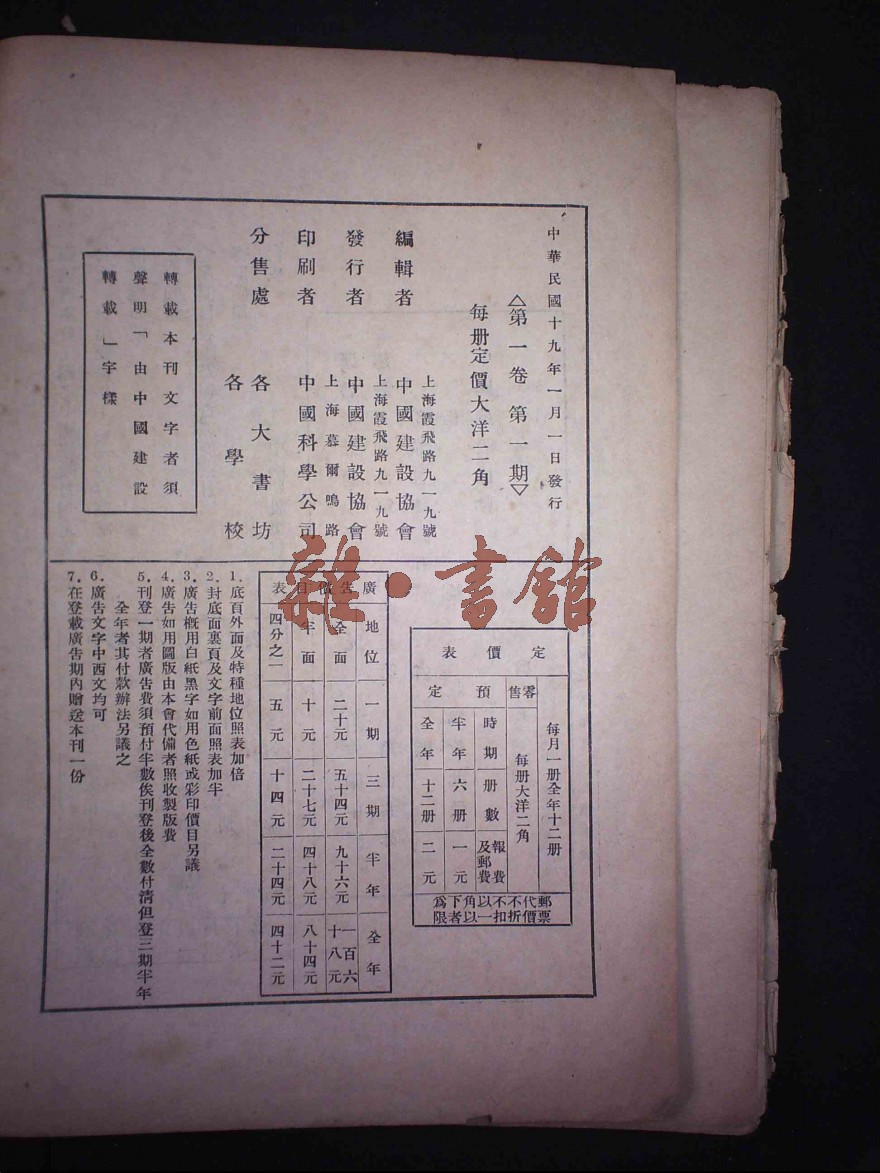 中華民國十九年一月一日發行
△第一卷 第一期▽
每册定價大洋二角
編輯者 中國建設協會
上海霞飛路九一九號
發行者 中國建設協會
上海霞飛路九一九號
印刷者 中國科學公司
上海慕爾鳴路
分售處 各大書坊
各學校
轉載本刊文字者須
聲明「由中國建設
轉載」字樣
定價表
每月一册全年十二册
零售 每册大洋二角
預定 時期 册數 報費及郵費
半年 六册 一元
全年 十二册 二元
郵票代價不折不扣以一角以下者爲限
廣告價目表
地位 一期 三期 半年 全年
全面 二十元 五十四元 九十六元 一百六十八元
半面 十元 二十七元 四十八元 八十四元
四分之一 五元 十四元 二十四元 四十二元
1.底頁外面及特種地位照表加倍
2.封底面裏頁及文字前面照表加半
3.廣告概用白紙黑字如用色紙或彩印價目另議
4.廣告如用圖版由本會代備者照收製版費
5.刊登一期者廣告費須預付半數俟刊登後全數付清但登三期半年
全年者其付款辦法另議之
6.廣告文字中西文均可
7.在登載廣告期內贈送本刊一份
雜·書館